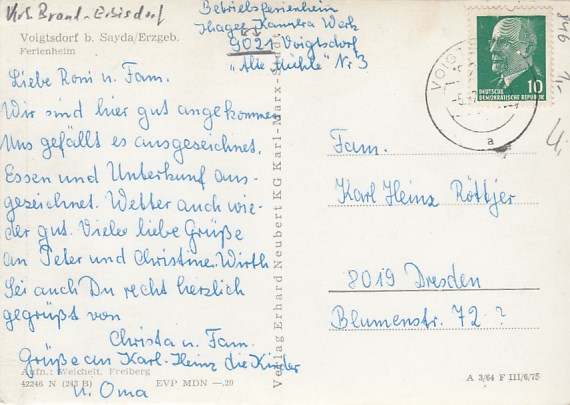 Krs. Brand-Erbisdorf
Voigtsdorf b. Sayda/Erzgeb.
Ferienheim
Betriebsferienheim
Ihagee Kamera Werk
9021 Voigtsdorf
„Alte Mühle" Nr. 3
Liebe Roni u. Fam.
Wir sind hier gut angekommen
Uns gefällt es ausgezeichnet.
Essen und Unterkunf aus-
gezeichnet. Wetter auch wie-
der gut. Viele liebe Grüße
an Peter und Christine. Wirth
Sei auch Du recht herzlich
gegrüßt von
Christa u. Fam.
Grüße an Karl-Heinz die Kinder
u. Oma
Aufn.: Weichelt, Freiberg
42246 N (243 B) EVP MDN —,20
Verlag Erhard Neubert KG Karl-Marx-Stadt
10
DEUTSCHE
DEMOKRATISCHE REPUBLIK
VOIGT
a
Fam.
Karl Heinz Röttjer
8019 Dresden
Blumenstr. 72 ?
A 3/64 F III/6/75